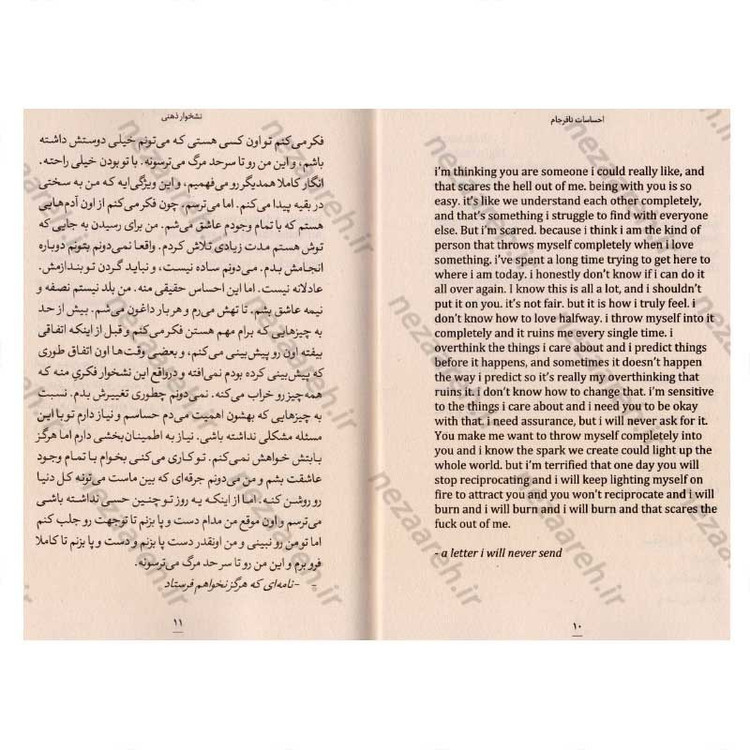 احساسات نافرجام
i'm thinking you are someone i could really like, and
that scares the hell out of me. being with you is so
easy. it's like we understand each other completely,
and that's something i struggle to find with everyone
else. But i'm scared. because i think i am the kind of
person that throws myself completely when i love
something. i've spent a long time trying to get here to
where i am today. i honestly don't know if i can do it
all over again. I know this is all a lot, and i shouldn't
put it on you. it's not fair. but it is how i truly feel. i
don't know how to love halfway. i throw myself into it
completely and it ruins me every single time. i
overthink the things i care about and i predict things
before it happens, and sometimes it doesn't happen
the way i predict so it's really my overthinking that
ruins it. i don't know how to change that. i'm sensitive
to the things i care about and i need you to be okay
with that. i need assurance, but i will never ask for it.
You make me want to throw myself completely into
you and i know the spark we create could light up the
whole world. but i'm terrified that one day you will
stop reciprocating and i will keep lighting myself on
fire to attract you and you won't reciprocate and i will
burn and i will burn and i will burn and that scares the
fuck out of me.
- a letter i will never send
۱۰
نشخوار ذهنی
فکر می‌کنم تو اون کسی هستی که می‌تونم خیلی دوستش داشته
باشم، و این من رو تا سر حد مرگ می‌ترسونه. با تو بودن خیلی راحته.
انگار کاملا همدیگر رو می‌فهمیم، و این ویژگی‌ایه که من به سختی
در بقیه پیدا می‌کنم. اما می‌ترسم، چون فکر می‌کنم از اون آدم‌هایی
هستم که با تمام وجودم عاشق می‌شم. من برای رسیدن به جایی که
توش هستم مدت زیادی تلاش کردم. واقعا نمی‌دونم بتونم دوباره
انجامش بدم. می‌دونم ساده نیست، و نباید گردن تو بندازمش.
عادلانه نیست. اما این احساس حقیقی منه. من بلد نیستم نصفه و
نیمه عاشق بشم. تا تهش می‌رم و هر بار داغون می‌شم. بیش از حد
به چیزهایی که برام مهم هستن فکر می‌کنم و قبل از اینکه اتفاقی
بیفته اون رو پیش‌بینی می‌کنم، و بعضی وقت‌ها اون اتفاق طوری
که پیش‌بینی کرده بودم نمی‌افته و درواقع این نشخوار فکریِ منه که
همه چیز رو خراب می‌کنه. نمی‌دونم چطوری تغییرش بدم. نسبت
به چیزهایی که بهشون اهمیت می‌دم حساسم و نیاز دارم تو با این
مسئله مشکلی نداشته باشی. نیاز به اطمینان‌بخشی دارم اما هرگز
بابتش خواهش نمی‌کنم. تو کاری می‌کنی بخوام با تمام وجود
عاشقت بشم و من می‌دونم جرقه‌ای که بین ماست می‌تونه کل دنیا
رو روشن کنه. اما از اینکه یه روز تو چنین حسی نداشته باشی
می‌ترسم و اون موقع من مدام دست و پا بزنم تا توجهت رو جلب کنم
اما تو من رو نبینی و من اونقدر دست و پا بزنم و دست و پا بزنم تا کاملا
فرو برم و این من رو تا سر حد مرگ می‌ترسونه.
- -نامه‌ای که هرگز نخواهم فرستاد
۱۱
nezaareh.ir